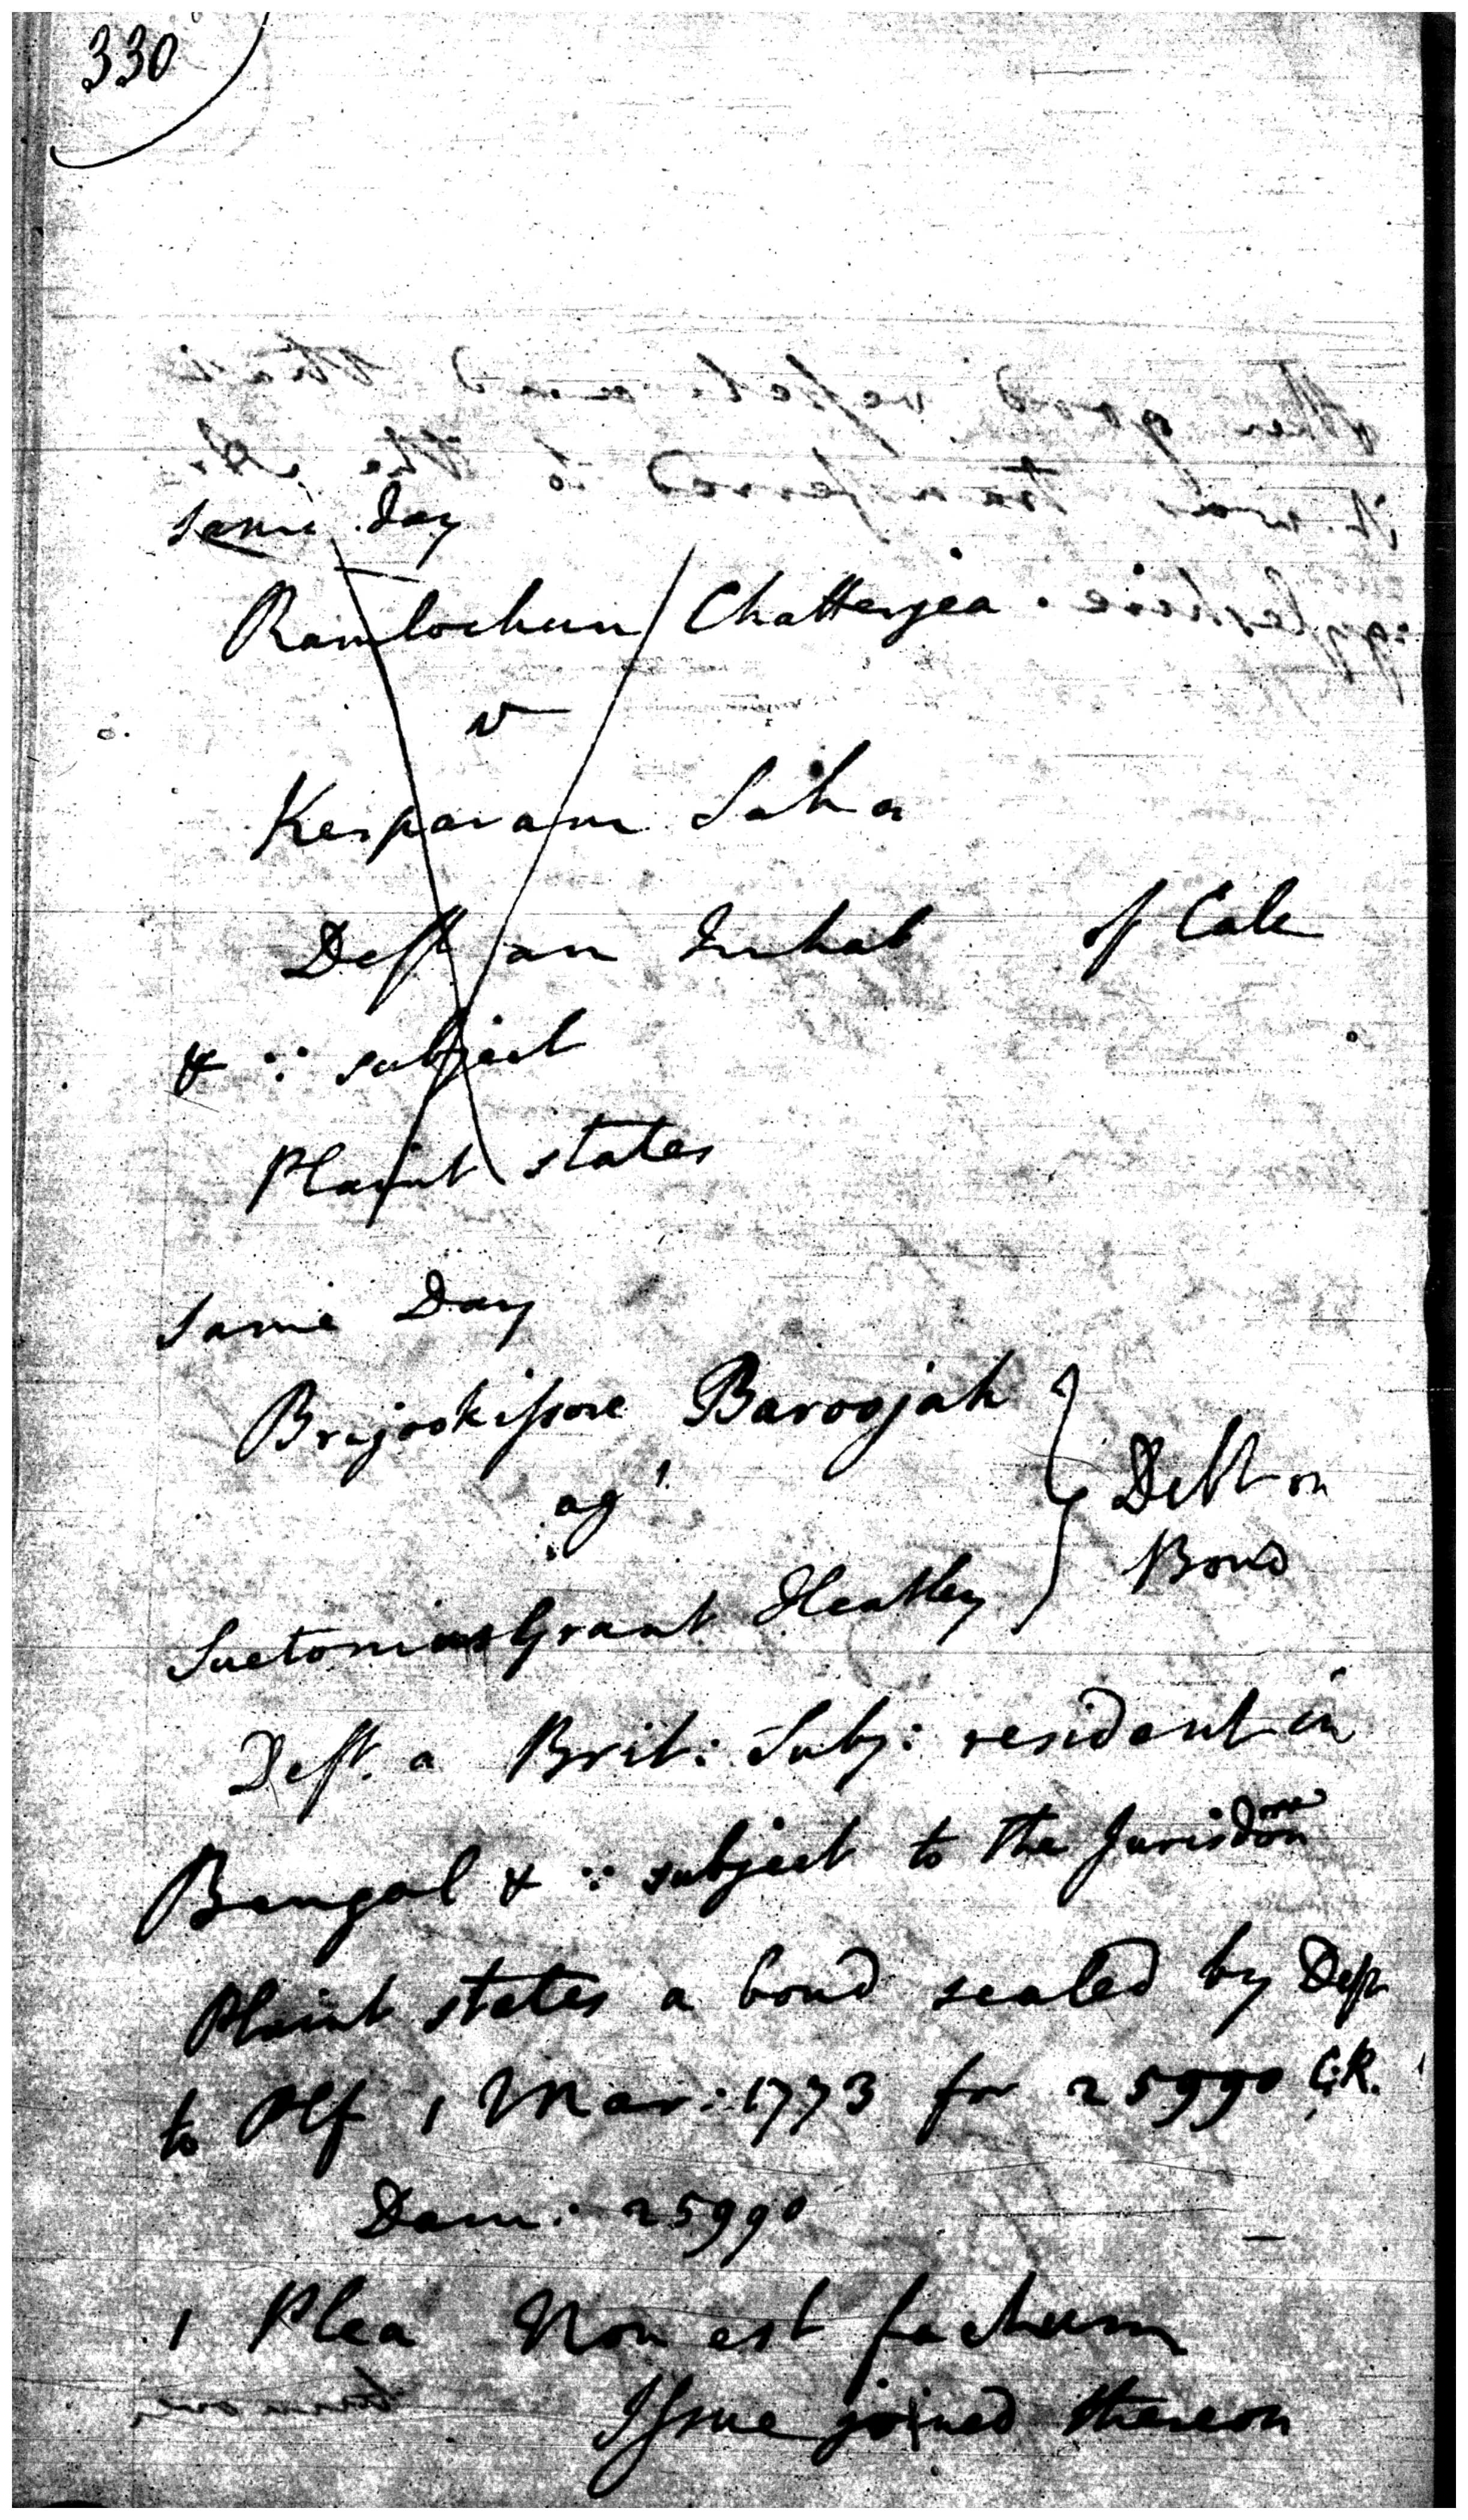 330
same day
Ramlochun Chatterjea
v
Kesparam Saha
Deft an Inhab of Calc
& ∵ subject
Plaint states
Same Day
Brijookissore Baroojah
agt
Debt on
Bond
Suetonius Grant Heatley
Deft. a Brit: Subj: resident in
Bengal & ∵ subject to the Jurisdon
Plaint states a bond sealed by Deft
to Plf 1 Mar: 1773 for 25990 C.R.
Dam: 25990
1 Plea Non est factum
Issue joined thereon